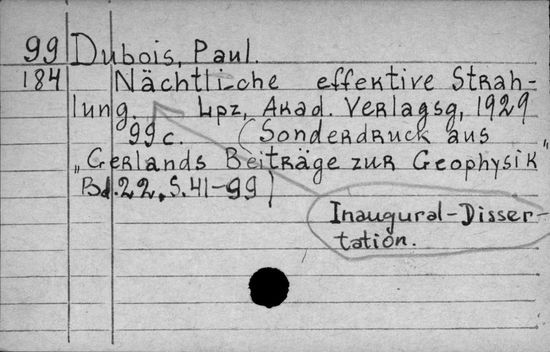 99 Dubois, Paul.
184 Nächtliche effektive Strah-
lung. - Lpz, Akad. Verlagsg, 1929
99 c. (Sonderdruck aus
„Gerlands Beiträge zur Geophysik"
Bd.22, S.41-99)
Inaugural-Disser-
tation.